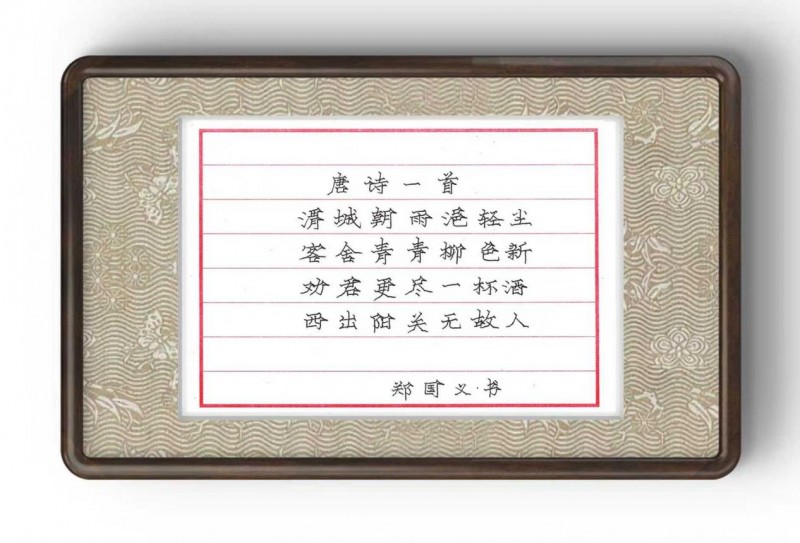 唐诗一首
渭城朝雨浥轻尘
客舍青青柳色新
劝君更尽一杯酒
西出阳关无故人
郑国义·书